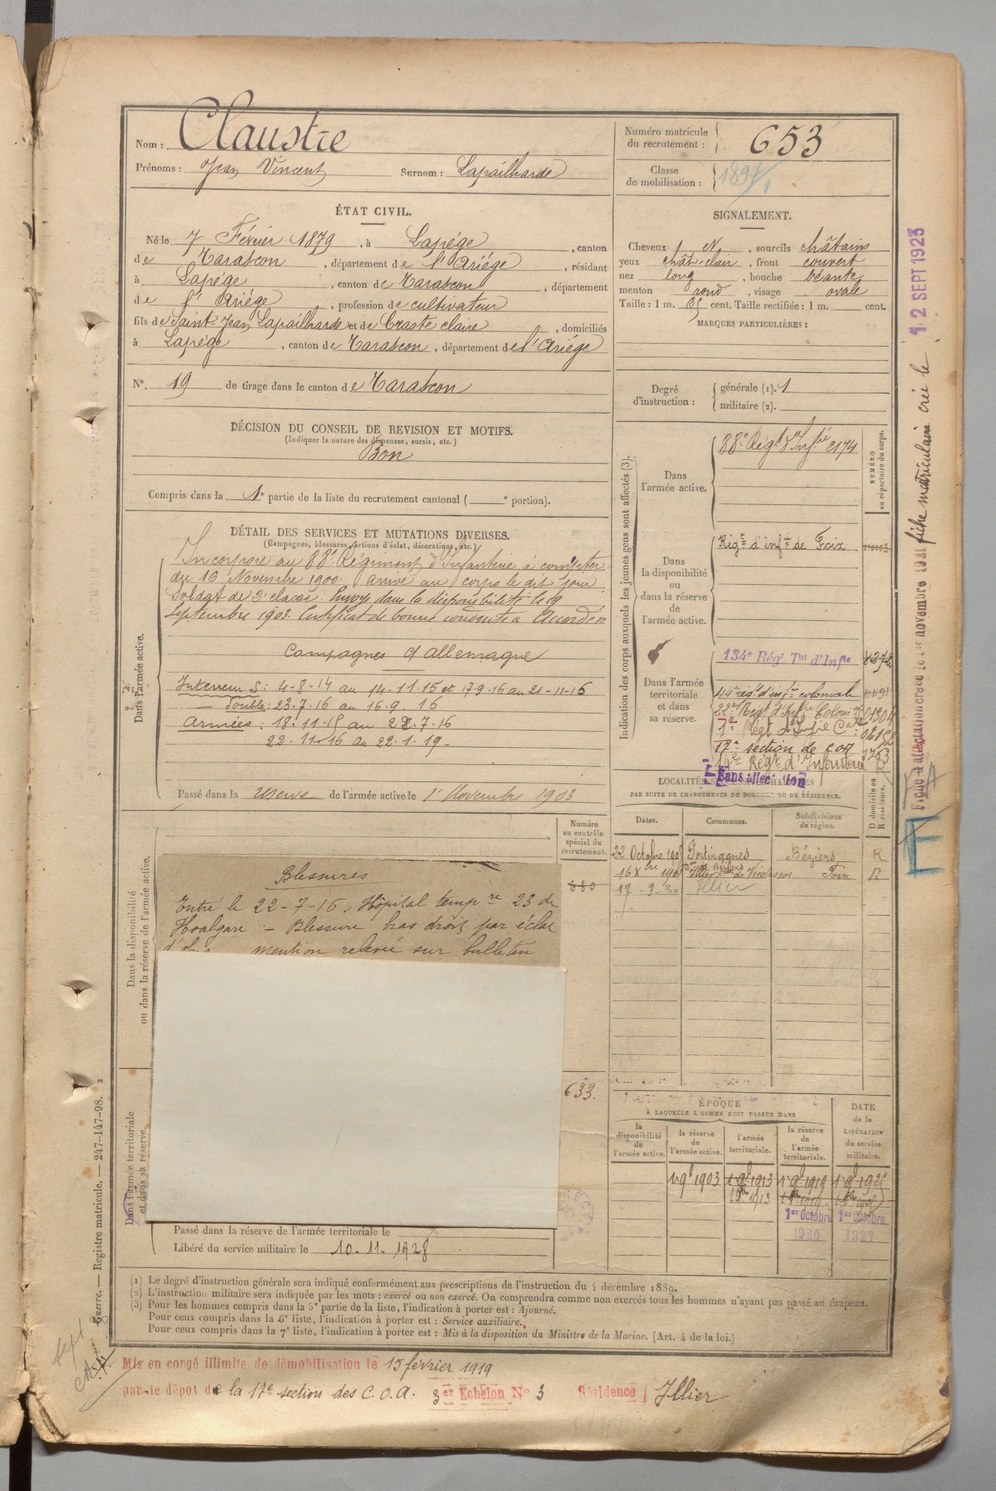 Nom : Claustre
Prénoms : Jean Vincent Surnom : Lapailharde
Numéro matricule du recrutement : 653
Classe de mobilisation : 1897
ÉTAT CIVIL.
Né le 7 Février 1879, à Lapège, canton
de Tarascon, département de l'Ariège, résidant
à Lapège, canton de Tarascon, département
de l'Ariège, profession de cultivateur
fils de Saint-Jean Lapailharde et de Craste claire, domiciliés
à Lapège, canton de Tarascon, département de l'Ariège
N°. 19 de tirage dans le canton de Tarascon
SIGNALEMENT.
Cheveux N, sourcils châtains
yeux chât-clair, front couvert
nez long, bouche béante
menton rond, visage ovale
Taille : 1 m. 65 cent. Taille rectifiée : 1 m. cent.
MARQUES PARTICULIÈRES :
Degré d'instruction : générale (1). 1
militaire (2).
DÉCISION DU CONSEIL DE REVISION ET MOTIFS.
(Indiquer la nature des dispenses, sursis, etc.)
Bon
Compris dans la 1e partie de la liste du recrutement cantonal ( e portion).
DÉTAIL DES SERVICES ET MUTATIONS DIVERSES.
(Campagnes, blessures, actions d'éclat, décorations, etc.)
Dans l'armée active.
Incorporé au 88e Régiment d'Infanterie à compter
du 16 Novembre 1900. arrivé au corps le dit jour
Soldat de 2e classe. Envoyé dans la disponibilité le 19
Septembre 1903. Certificat de bonne conduite "Accordé"
Campagnes d'allemagne
Interieur S : 4-8-14 au 14.11.15 et 17.9.16 au 21-11-16
— double : 23.7.16 au 16.9.16
Armées : 18.11.15 au 22.7.16
22.11.16 au 22.1.19-
Passé dans la réserve de l'armée active le 1er Novembre 1903
Indication des corps auxquels les jeunes gens sont affectés (3).
NUMÉRO au répertoire du corps.
Dans l'armée active.
88e Régt d'Infie 2174
Dans la disponibilité ou dans la réserve de l'armée active.
Régt d'infie de Foix
Dans l'armée territoriale et dans sa réserve.
134e Régt Tal d'Infie
44e régt d'infie coloniale
22e Régt d'Infie Coloniale
7e Régt d'Infie Cale
17e section de coa
14e Régt d'Infanterie
Sans affectation
LOCALITÉS
PAR SUITE DE CHANGEMENTS DE DOMICILE OU DE RÉSIDENCE.
Dates. Communes. Subdivisions de région. D domicile ou R résidence.
22 Octobre 190 Portiragnes Béziers R
16 Xbre 190 Foix R
17-9-30 Illier
Numéro au contrôle spécial du recrutement.
Dans la disponibilité ou dans la réserve de l'armée active.
Blessures
Entré le 22-7-16, Hôpital tempre 23 de
Hoalgan – Blessure bras droit par éclat
mention relevé sur bulletin
633.
Dans l'armée territoriale et dans sa réserve.
Passé dans la réserve de l'armée territoriale le
Libéré du service militaire le 10.11.1928
ÉPOQUE
À LAQUELLE L'HOMME DOIT PASSER DANS
DATE de la LIBÉRATION du service militaire.
la disponibilité de l'armée active. la réserve de l'armée active. l'armée territoriale. la réserve de l'armée territoriale.
1 9b 1903 1 9b 1913 1 9b 1919 1 9b 1925
1er Octobre 1920 1er Octobre 1927
(1) Le degré d'instruction générale sera indiqué conformément aux prescriptions de l'instruction du 4 décembre 1889.
(2) L'instruction militaire sera indiquée par les mots : exercé ou non exercé. On comprendra comme non exercés tous les hommes n'ayant pas passé au drapeau.
(3) Pour les hommes compris dans la 5e partie de la liste, l'indication à porter est : Ajourné.
Pour ceux compris dans la 6e liste, l'indication à porter est : Service auxiliaire.
Pour ceux compris dans la 7e liste, l'indication à porter est : Mis à la disposition du Ministre de la Marine. (Art. 4 de la loi.)
Mis en congé illimité de démobilisation le 15 février 1919
par le dépôt de la 17e section des C.O.A. 3e Echelon N° 3 Résidence Illier
Guerre. — Registre matricule. — 247-147-98.
fiche matriculaire crée le 12 SEPT 1923